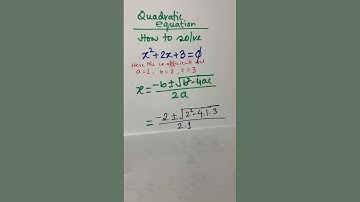 Quadratic
equation
How to solve
x²+2x+3=0
Here the coefficient are
a=1, b=2, c=3
x = -b±√b²-4ac / 2a
= -2±√2²-4.1.3 / 2.1